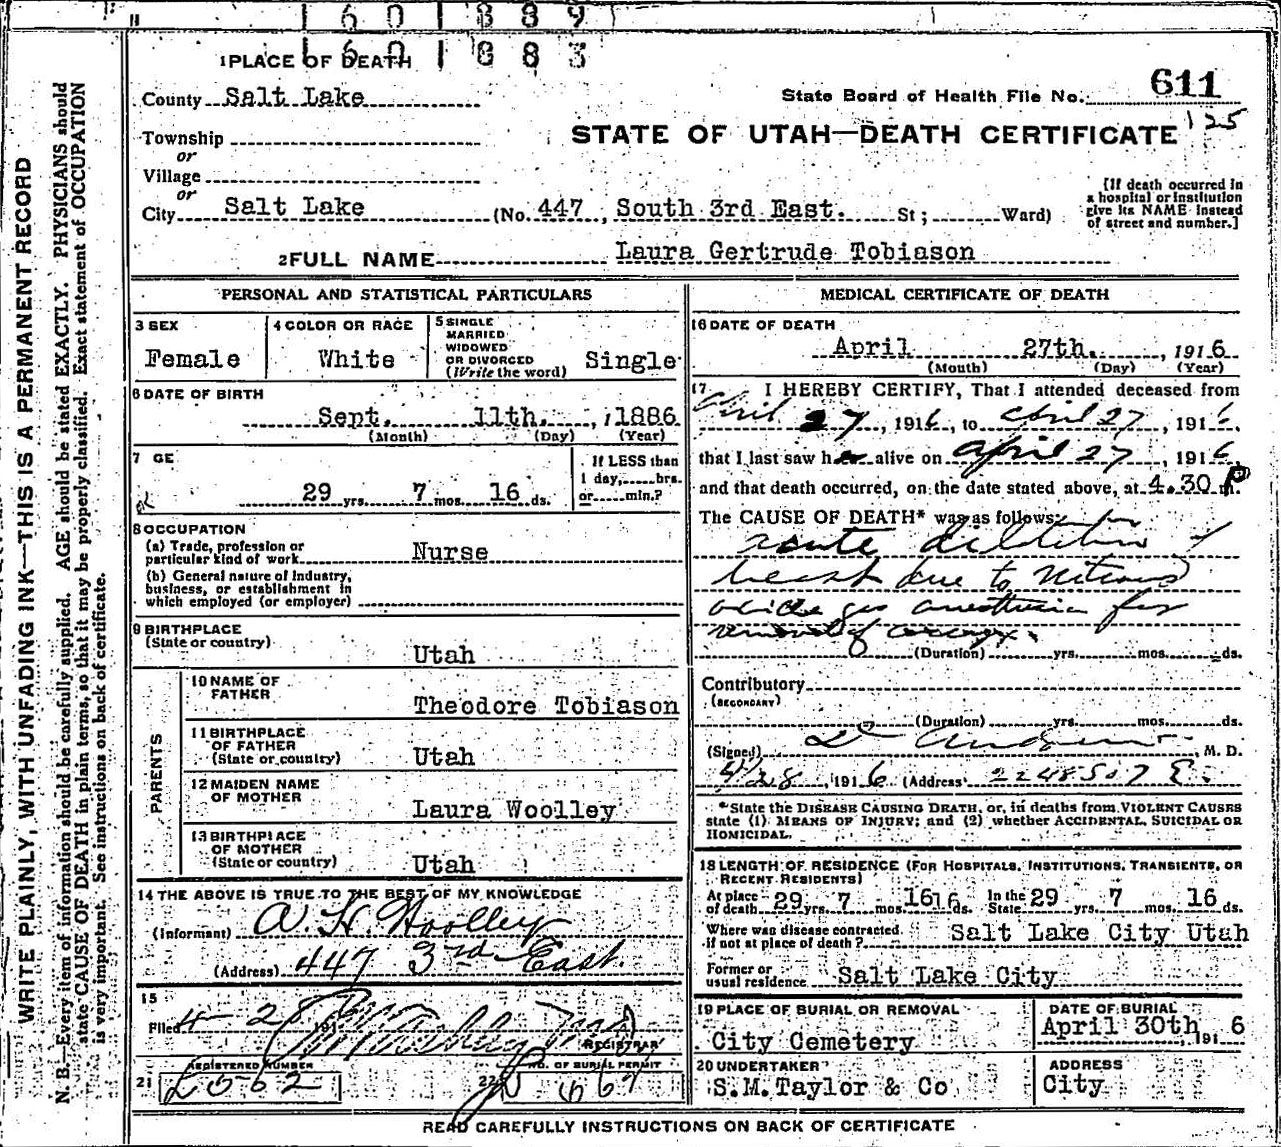 1 6 0 1 8 8 9
1 6 0 1 8 8 3
1 PLACE OF DEATH
County Salt Lake
Township
or
Village
or
City Salt Lake (No. 447, South 3rd East. St; Ward)
State Board of Health File No. 611
125
STATE OF UTAH—DEATH CERTIFICATE
[If death occurred in
a hospital or institution
give its NAME instead
of street and number.]
2 FULL NAME Laura Gertrude Tobiason
PERSONAL AND STATISTICAL PARTICULARS
3 SEX
Female
4 COLOR OR RACE
White
5 SINGLE
MARRIED
WIDOWED
OR DIVORCED
(Write the word) Single
6 DATE OF BIRTH
Sept. 11th. , 1886
(Month) (Day) (Year)
7 GE
29 yrs. 7 mos. 16 ds.
If LESS than
1 day, hrs.
or min.?
8 OCCUPATION
(a) Trade, profession or
particular kind of work Nurse
(b) General nature of Industry,
business, or establishment in
which employed (or employer)
9 BIRTHPLACE
(State or country)
Utah
PARENTS
10 NAME OF
FATHER
Theodore Tobiason
11 BIRTHPLACE
OF FATHER
(State or country) Utah
12 MAIDEN NAME
OF MOTHER
Laura Woolley
13 BIRTHPLACE
OF MOTHER
(State or country) Utah
14 THE ABOVE IS TRUE TO THE BEST OF MY KNOWLEDGE
(Informant) A. H. Woolley
(Address) 447 3rd East.
15
Filed 4-28 191
REGISTRAR
REGISTERED NUMBER
21
NO. OF BURIAL PERMIT
22
MEDICAL CERTIFICATE OF DEATH
16 DATE OF DEATH
April 27th. , 1916
(Month) (Day) (Year)
17 I HEREBY CERTIFY, That I attended deceased from
April 27, 1916, to April 27, 1916,
that I last saw her alive on April 27, 1916,
and that death occurred, on the date stated above, at 4.30 P m.
The CAUSE OF DEATH* was as follows:
acute dilitation of
heart due to Nitrous
oxide gas anesthesia for
removal of coccyx.
(Duration) yrs. mos. ds.
Contributory
(SECONDARY)
(Duration) yrs. mos. ds.
(Signed) M. D.
4/28, 1916 (Address) 2248 So 7 E.
*State the DISEASE CAUSING DEATH, or, in deaths from VIOLENT CAUSES
state (1) MEANS OF INJURY; and (2) whether ACCIDENTAL, SUICIDAL OR
HOMICIDAL.
18 LENGTH OF RESIDENCE (FOR HOSPITALS, INSTITUTIONS, TRANSIENTS, OR
RECENT RESIDENTS)
At place
of death 29 yrs. 7 mos. 1616 ds. In the
State 29 yrs. 7 mos. 16 ds.
Where was disease contracted
if not at place of death? Salt Lake City Utah
Former or
usual residence Salt Lake City
19 PLACE OF BURIAL OR REMOVAL
City Cemetery
DATE OF BURIAL
April 30th, 1916
20 UNDERTAKER
S.M. Taylor & Co
ADDRESS
City
READ CAREFULLY INSTRUCTIONS ON BACK OF CERTIFICATE
WRITE PLAINLY, WITH UNFADING INK—THIS IS A PERMANENT RECORD
N. B.—Every item of information should be carefully supplied. AGE should be stated EXACTLY. PHYSICIANS should
state CAUSE OF DEATH in plain terms, so that it may be properly classified. Exact statement of OCCUPATION
is very important. See instructions on back of certificate.